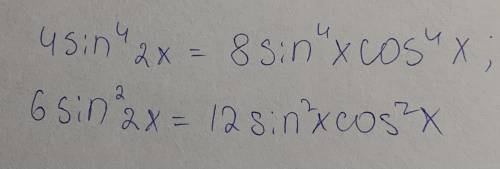 4sin⁴2x = 8sin⁴xcos⁴x;
6sin²2x = 12sin²xcos²x